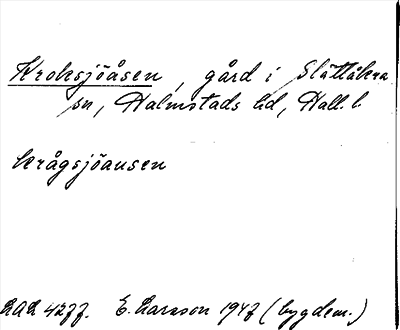 Kroksjöåsen, gård i Slättåkra
sn, Halmstads hd, Hall. l.
krågsjöausen
E. Larsson 1947 (bygdem.)